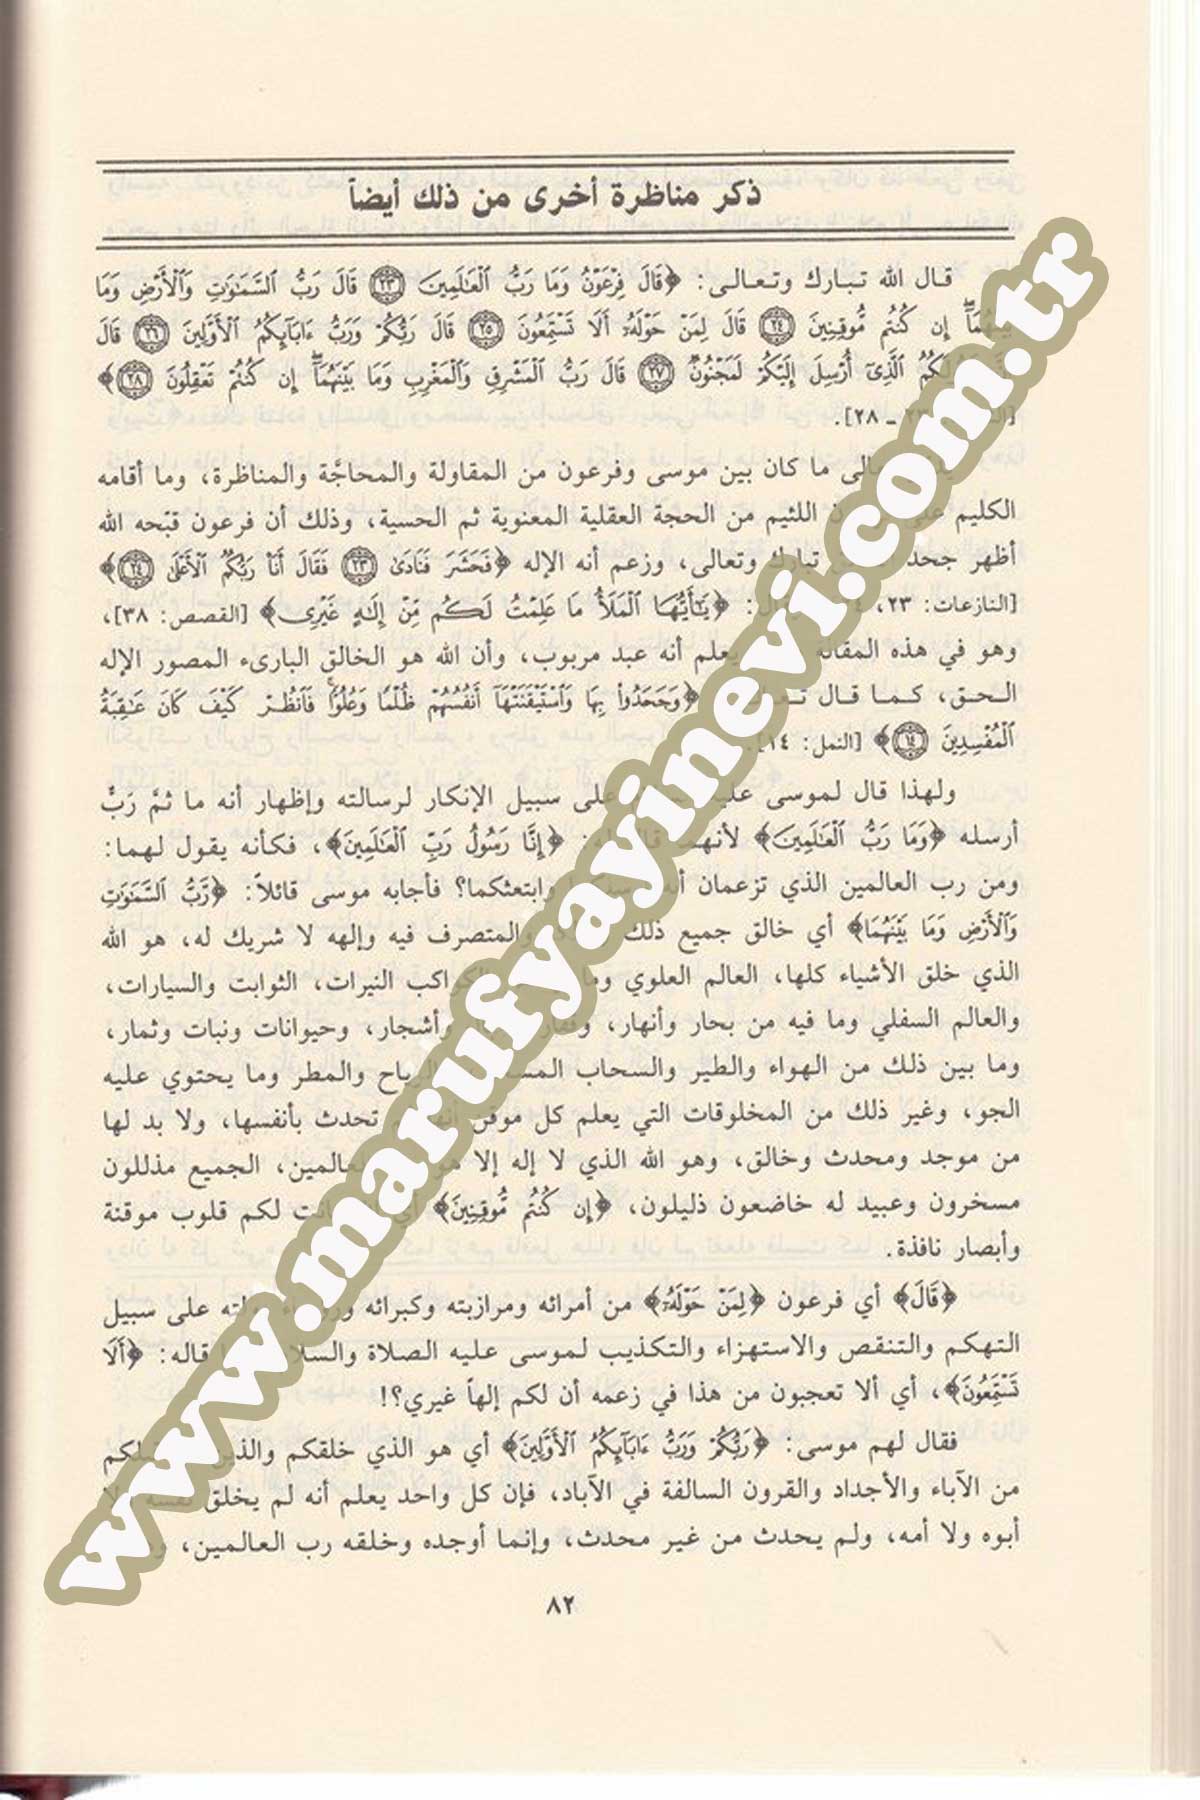 ذكر مناظرة أخرى من ذلك أيضاً
قال الله تبارك وتعالى: ﴿قَالَ فِرْعَوْنُ وَمَا رَبُّ ٱلْعَٰلَمِينَ ٢٣ قَالَ رَبُّ ٱلسَّمَٰوَٰتِ وَٱلْأَرْضِ وَمَا
بَيْنَهُمَآ إِن كُنتُم مُّوقِنِينَ ٢٤ قَالَ لِمَنْ حَوْلَهُۥٓ أَلَا تَسْتَمِعُونَ ٢٥ قَالَ رَبُّكُمْ وَرَبُّ ءَابَآئِكُمُ ٱلْأَوَّلِينَ ٢٦ قَالَ
رَسُولَكُمُ ٱلَّذِىٓ أُرْسِلَ إِلَيْكُمْ لَمَجْنُونٌ ٢٧ قَالَ رَبُّ ٱلْمَشْرِقِ وَٱلْمَغْرِبِ وَمَا بَيْنَهُمَآ إِن كُنتُمْ تَعْقِلُونَ ٢٨﴾
٢٣ ـ ٢٨].
تعالى ما كان بين موسى وفرعون من المقاولة والمحاجَّة والمناظرة، وما أقامه
الكليم على اللئيم من الحجة العقلية المعنوية ثم الحسية، وذلك أن فرعون قبّحه الله
أظهر جحد تبارك وتعالى، وزعم أنه الإله ﴿فَحَشَرَ فَنَادَىٰ ٢٣ فَقَالَ أَنَا۠ رَبُّكُمُ ٱلْأَعْلَىٰ ٢٤﴾
[النازعات: ٢٣، ٢٤] ﴿يَٰٓأَيُّهَا ٱلْمَلَأُ مَا عَلِمْتُ لَكُم مِّنْ إِلَٰهٍ غَيْرِى﴾ [القصص: ٣٨]،
وهو في هذه المقالة يعلم أنه عبد مربوب، وأن الله هو الخالق البارىء المصور الإله
الحق، كما قال تعالى ﴿وَجَحَدُوا۟ بِهَا وَٱسْتَيْقَنَتْهَآ أَنفُسُهُمْ ظُلْمًا وَعُلُوًّا فَٱنظُرْ كَيْفَ كَانَ عَٰقِبَةُ
ٱلْمُفْسِدِينَ ١٤﴾ [النمل: ١٤].
ولهذا قال لموسى عليه على سبيل الإنكار لرسالته وإظهار أنه ما ثمَّ رَبٌّ
أرسله ﴿وَمَا رَبُّ ٱلْعَٰلَمِينَ﴾ لأنهما قالا له: ﴿إِنَّا رَسُولُ رَبِّ ٱلْعَٰلَمِينَ﴾، فكأنه يقول لهما:
ومن رب العالمين الذي تزعمان أنه وابتعثكما؟ فأجابه موسى قائلاً: ﴿رَبُّ ٱلسَّمَٰوَٰتِ
وَٱلْأَرْضِ وَمَا بَيْنَهُمَا﴾ أي خالق جميع ذلك والمتصرف فيه وإلهه لا شريك له، هو الله
الذي خلق الأشياء كلها، العالم العلوي وما الكواكب النيرات، الثوابت والسيارات،
والعالم السفلي وما فيه من بحار وأنهار، وقفار وأشجار، وحيوانات ونبات وثمار،
وما بين ذلك من الهواء والطير والسحاب الرياح والمطر وما يحتوي عليه
الجو، وغير ذلك من المخلوقات التي يعلم كل موقن أنها تحدث بأنفسها، ولا بد لها
من موجد ومحدث وخالق، وهو الله الذي لا إله إلا هو العالمين، الجميع مذللون
مسخرون وعبيد له خاضعون ذليلون، ﴿إِن كُنتُم مُّوقِنِينَ﴾ أي كانت لكم قلوب موقنة
وأبصار نافذة.
﴿قَالَ﴾ أي فرعون ﴿لِمَنْ حَوْلَهُۥٓ﴾ من أمرائه ومرازبته وكبرائه على سبيل
التهكم والتنقص والاستهزاء والتكذيب لموسى عليه الصلاة والسلام قاله: ﴿أَلَا
تَسْتَمِعُونَ﴾، أي ألا تعجبون من هذا في زعمه أن لكم إلهاً غيري؟!
فقال لهم موسى: ﴿رَبُّكُمْ وَرَبُّ ءَابَآئِكُمُ ٱلْأَوَّلِينَ﴾ أي هو الذي خلقكم والذين
من الآباء والأجداد والقرون السالفة في الآباد، فإن كل واحد يعلم أنه لم يخلق نفسه ولا
أبوه ولا أمه، ولم يحدث من غير محدث، وإنما أوجده وخلقه رب العالمين،
٨٢
www.marufyayinevi.com.tr